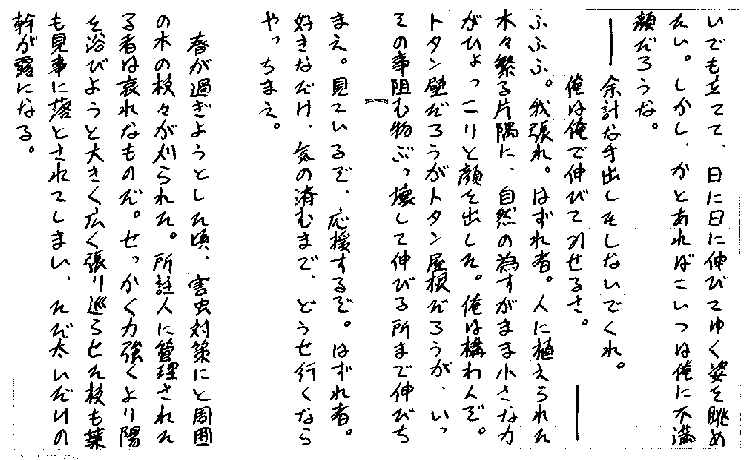 いでも立てて、日に日に伸びてゆく姿を眺め
たい。しかし、かとあればこいつは俺に不満
顔だろうな。
――余計な手出しをしないでくれ。
俺は俺で伸びてみせるさ。――
ふふふ。我張れ。はずれ者。人に植えられた
木々繁る片隅に、自然の為すがまま小さな力
がひょっこりと顔を出した。俺は構わんぞ。
トタン壁だろうがトタン屋根だろうが、いっ
その事阻む物ぶっ壊して伸びる所まで伸びち
まえ。見ているぞ、応援するぞ。はずれ者。
好きなだけ、気の済むまで、どうせ行くなら
やっちまえ。
春が過ぎようとした頃、害虫対策にと周囲
の木の枝々が刈られた。所詮人に管理された
る者は哀れなものだ。せっかく力強くより陽
を浴びようと大きく広く張り巡らせた枝も葉
も見事に落とされてしまい、ただ太いだけの
幹が露になる。